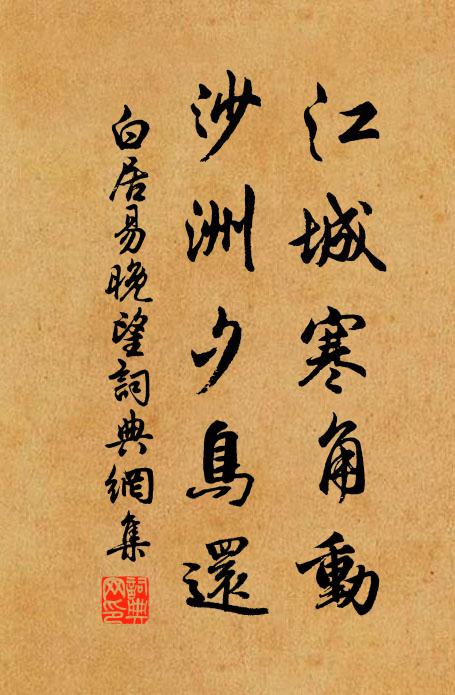 江城寒角動
沙洲夕鳥還
白居易晚望詞典網集
詞典網印